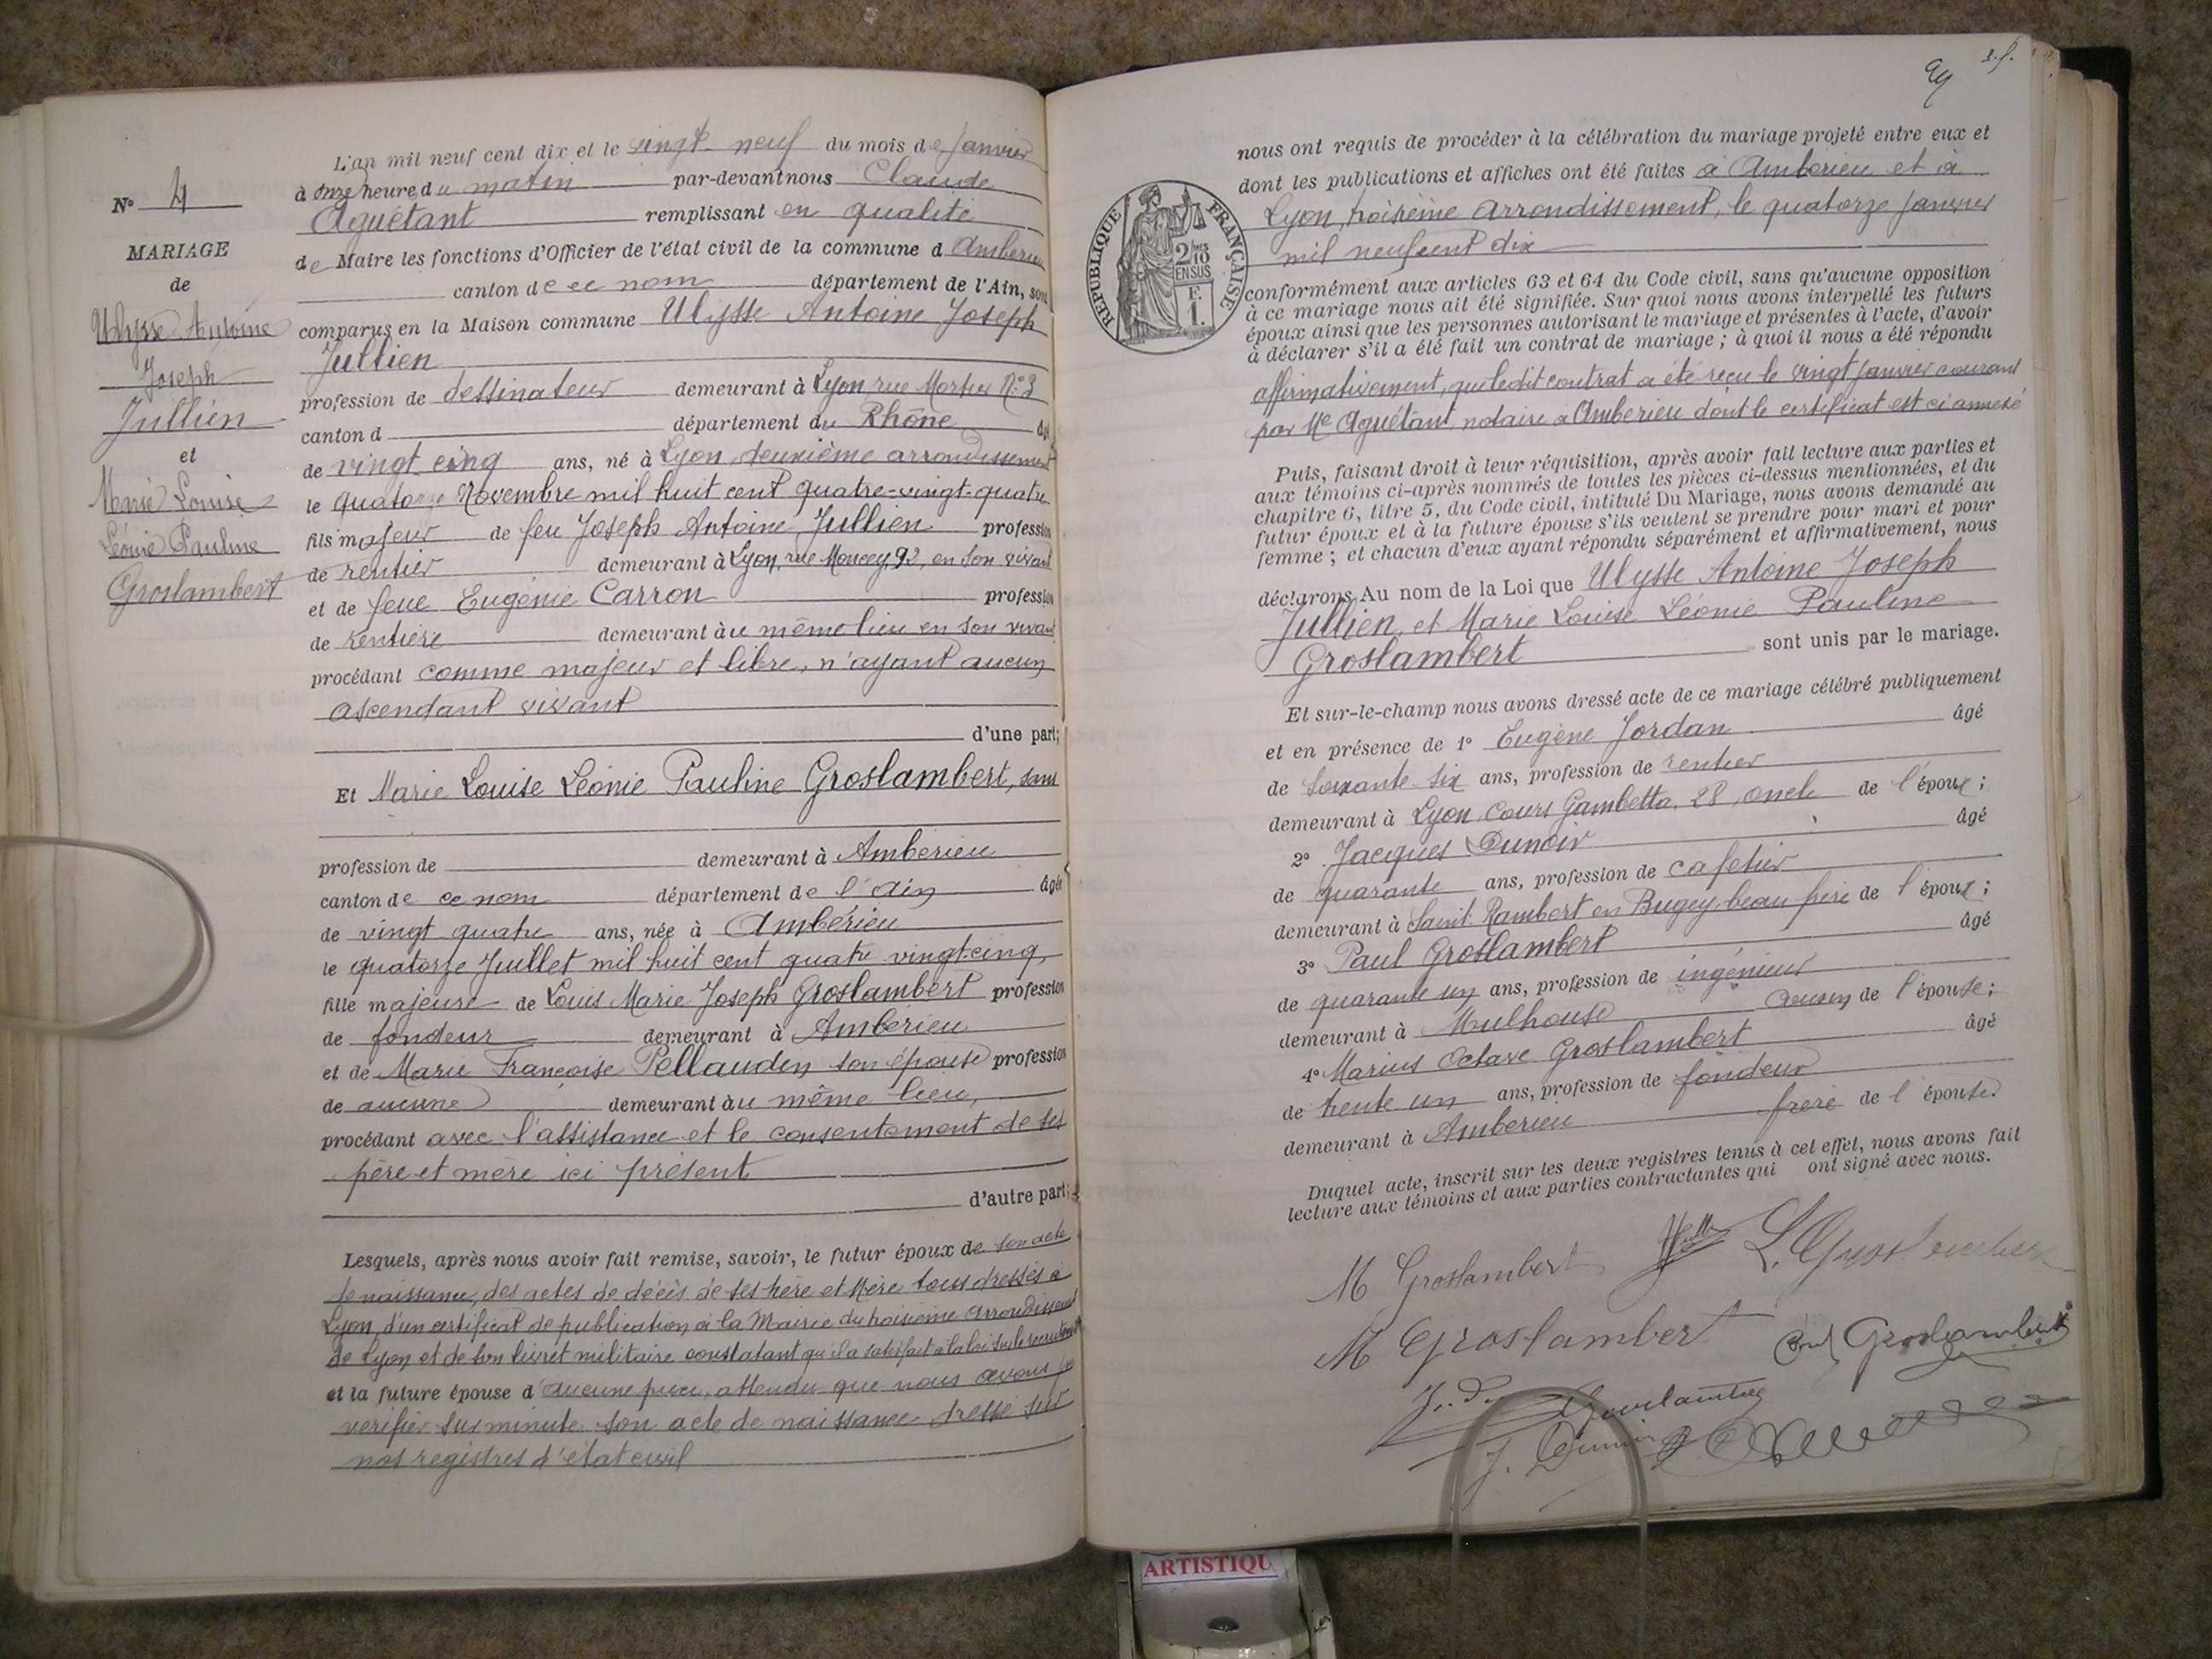 N° 4
MARIAGE
de
Ulysse Antoine
Joseph
Jullien
et
Marie Louise
Léonie Pauline
Groslambert
L'an mil neuf cent dix et le vingt-neuf du mois de Janvier
à onze heure du matin par-devant nous Claude
Aguétant remplissant en qualité
de Maire les fonctions d'Officier de l'état civil de la commune d Amberieu
canton de ce nom département de l'Ain, sont
comparus en la Maison commune Ulysse Antoine Joseph
Jullien
profession de dessinateur demeurant à Lyon, rue N° 3
canton d département du Rhône âgé
de vingt cinq ans, né à Lyon, deuxième arrondissement
le quatorze Novembre mil huit cent quatre-vingt-quatre
fils majeur de feu Joseph Antoine Jullien profession
de rentier demeurant à Lyon, rue Moncey, 92, en son vivant
et de feue Eugénie Carron profession
de Rentière demeurant àu même lieu en son vivant
procédant comme majeur et libre, n'ayant aucun
ascendant vivant
d'une part;
Et Marie Louise Léonie Pauline Groslambert, sans
profession de demeurant à Amberieu
canton de ce nom département de l'Ain âgée
de vingt quatre ans, née à Ambérieu
le quatorze Juillet mil huit cent quatre vingt-cinq,
fille majeure de Louis Marie Joseph Groslambert profession
de fondeur demeurant à Amberieu
et de Marie Françoise Pellaudin son épouse profession
de aucune demeurant àu même lieu,
procédant avec l'assistance et le consentement de ses
père et mère ici présent
d'autre part;
Lesquels, après nous avoir fait remise, savoir, le futur époux de son acte
de naissance, des actes de décès de ses Père et Mère tous dressés à
Lyon, d'un certificat de publication à la Mairie du troisième Arrondissement
de Lyon et de son livret militaire constatant qu'il a satisfait à la loi sur le recrutement
et la future épouse d'aucune pièce, attendu que nous avons pu
vérifier sur minute son acte de naissance dressé sur
nos registres d'état civil
nous ont requis de procéder à la célébration du mariage projeté entre eux et
dont les publications et affiches ont été faites à Amberieu et à
Lyon, troisième Arrondissement, le quatorze Janvier
mil neuf cent dix
RÉPUBLIQUE FRANÇAISE
2/10 EN SUS
F. 1.
conformément aux articles 63 et 64 du Code civil, sans qu'aucune opposition
à ce mariage nous ait été signifiée. Sur quoi nous avons interpellé les futurs
époux ainsi que les personnes autorisant le mariage et présentes à l'acte, d'avoir
à déclarer s'il a été fait un contrat de mariage ; à quoi il nous a été répondu
affirmativement, que ledit contrat a été reçu le vingt Janvier courant
par Me Aguétant notaire à Amberieu dont le certificat est ci annexé
Puis, faisant droit à leur réquisition, après avoir fait lecture aux parties et
aux témoins ci-après nommés de toutes les pièces ci-dessus mentionnées, et du
chapitre 6, titre 5, du Code civil, intitulé Du Mariage, nous avons demandé au
futur époux et à la future épouse s'ils veulent se prendre pour mari et pour
femme ; et chacun d'eux ayant répondu séparément et affirmativement, nous
déclarons Au nom de la Loi que Ulysse Antoine Joseph
Jullien, et Marie Louise Léonie Pauline
Groslambert sont unis par le mariage.
Et sur-le-champ nous avons dressé acte de ce mariage célébré publiquement
et en présence de 1° Eugène Jordan âgé
de soixante-six ans, profession de rentier
demeurant à Lyon, Cours Gambetta, 28, oncle de l'époux ;
2° Jacques Dunoir âgé
de quarante ans, profession de cafetier
demeurant à Saint-Rambert en Bugey, beau frère de l'époux ;
3° Paul Groslambert âgé
de quarante un ans, profession de ingénieur
demeurant à Mulhouse cousin de l'épouse ;
4° Marius Octave Groslambert âgé
de trente un ans, profession de fondeur
demeurant à Amberieu frère de l'épouse.
Duquel acte, inscrit sur les deux registres tenus à cet effet, nous avons fait
lecture aux témoins et aux parties contractantes qui ont signé avec nous.
M Groslambert L. Groslambert
M Groslambert Paul Groslambert
Groslambert
J. Dunoir
ARTISTIQU